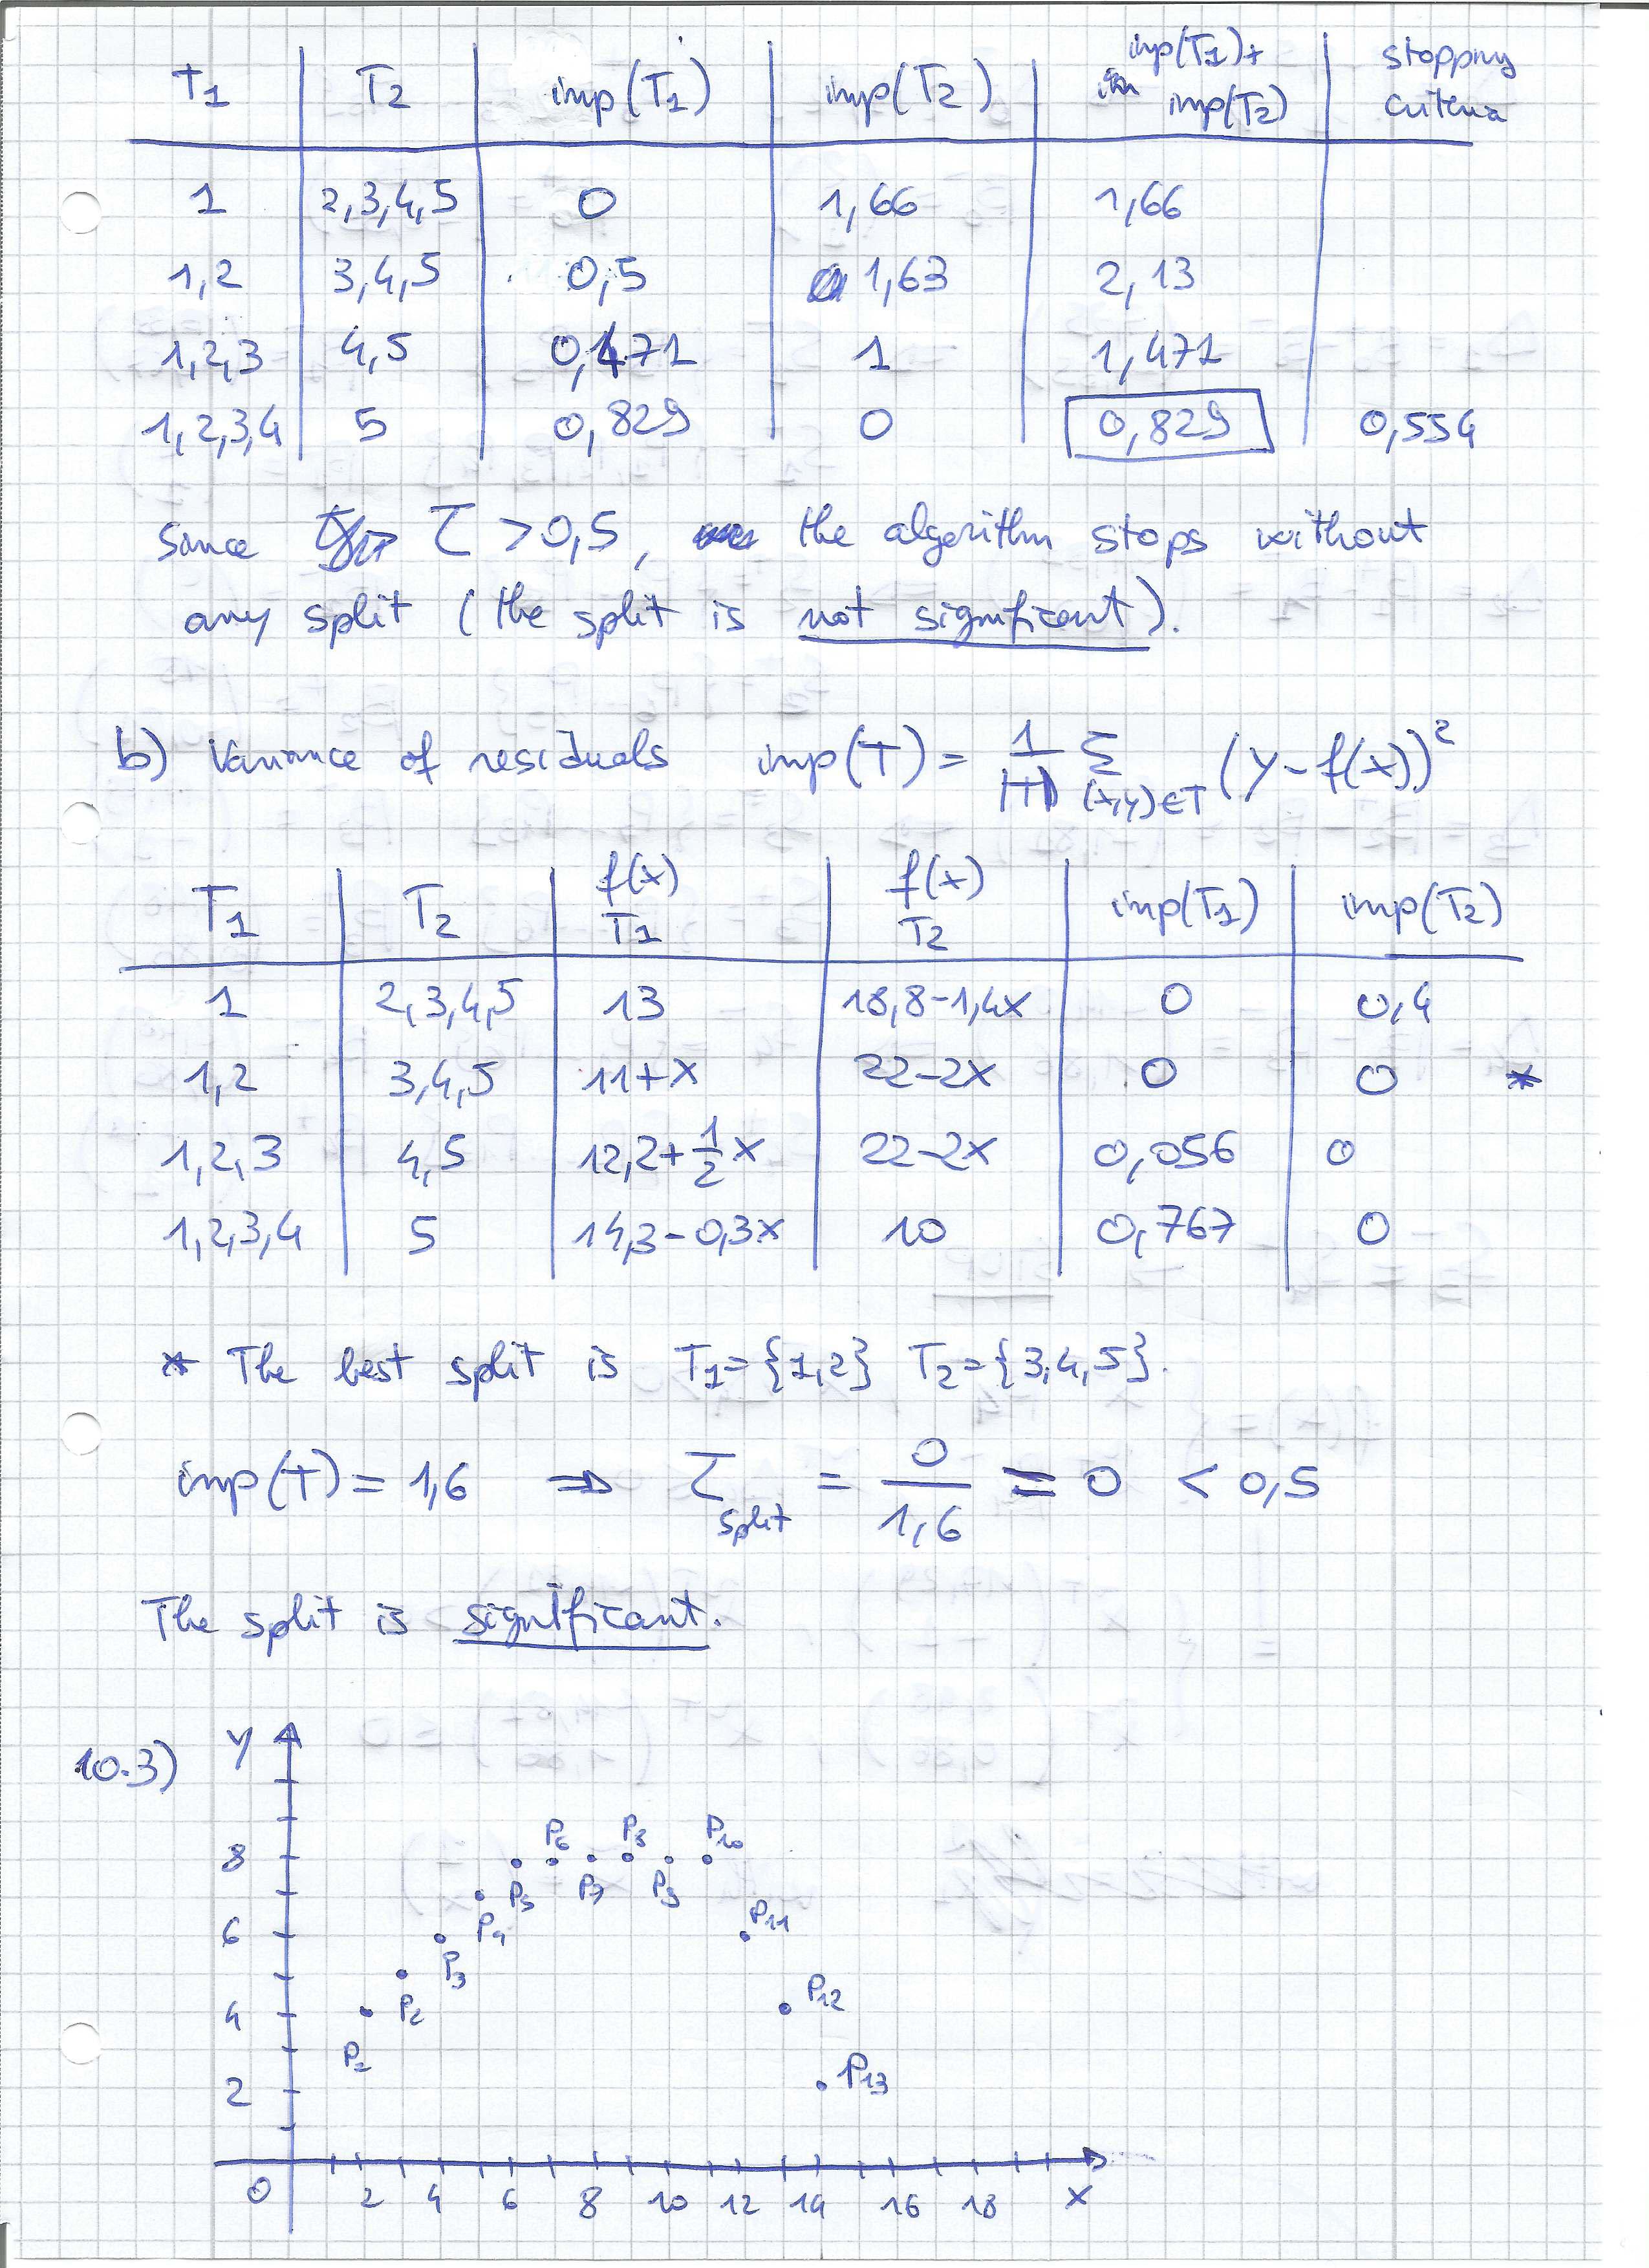 T1 | T2 | imp(T1) | imp(T2) | imp(T1)+ imp(T2) | stopping criteria
1 | 2,3,4,5 | 0 | 1,66 | 1,66
1,2 | 3,4,5 | 0,5 | 1,63 | 2,13
1,2,3 | 4,5 | 0,471 | 1 | 1,471
1,2,3,4 | 5 | 0,829 | 0 | 0,829 | 0,554
since τ > 0,5, the algorithm stops without
any split (the split is not significant).
b) Variance of residuals imp(T) = 1/|T| Σ (x,y)∈T (y-f(x))²
T1 | T2 | f(x) T1 | f(x) T2 | imp(T1) | imp(T2)
1 | 2,3,4,5 | 13 | 18,8-1,4x | 0 | 0,4
1,2 | 3,4,5 | 11+x | 22-2x | 0 | 0 *
1,2,3 | 4,5 | 12,2+1/2x | 22-2x | 0,056 | 0
1,2,3,4 | 5 | 14,3-0,3x | 10 | 0,767 | 0
* The best split is T1={1,2} T2={3,4,5}.
imp(T) = 1,6 ⇒ τsplit = 0/1,6 = 0 < 0,5
The split is significant.
10.3) y
P6 P8 P10
8
P5 P7 P9
P11
6 P4
P3
4 P2 P12
P1
2 P13
0 2 4 6 8 10 12 14 16 18 x